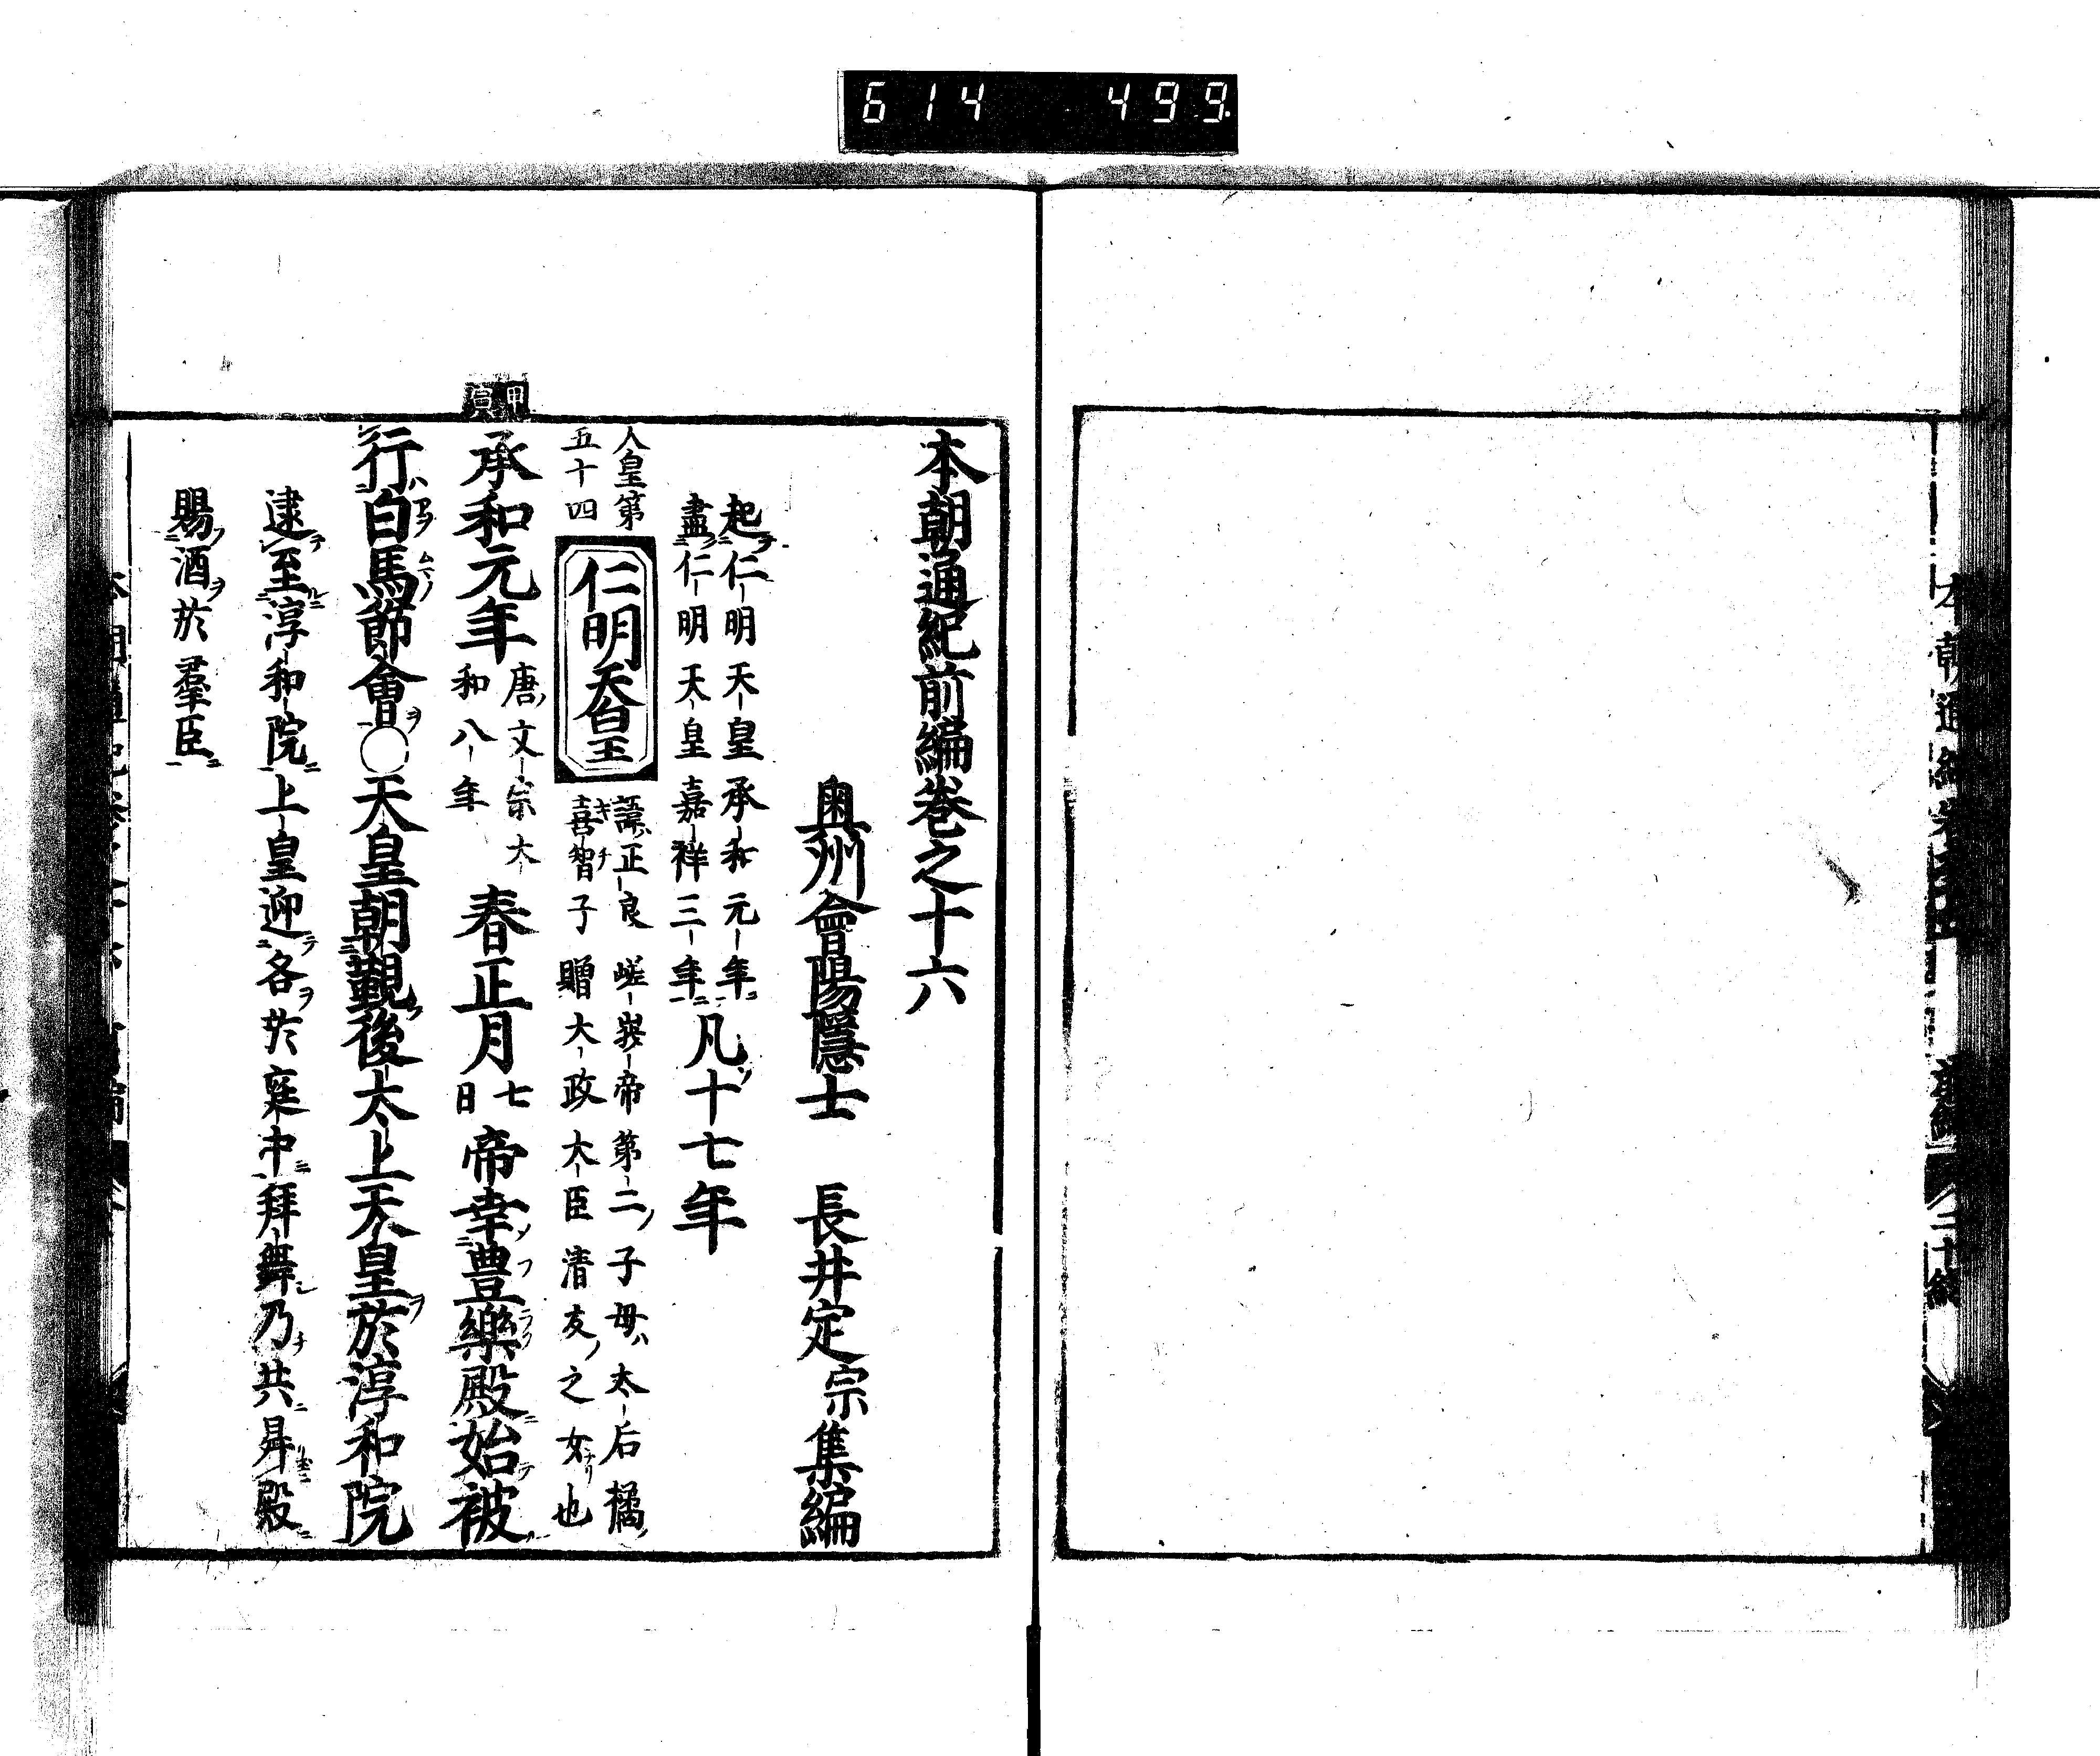 614 499
本朝通紀前編卷之十六
奥州會陽隱士 長井定宗集編
起仁明天皇承和元年
盡仁明天皇嘉祥三年
凡十七年
人皇第
五十四
仁明天皇
諱正良 嵯峩帝第二ノ子母ハ太后橘
喜智子贈大政大臣清友ノ之女ナリ也
甲寅
承和元年
唐ノ文宗大
和八年
春正月
七
日
帝幸豊樂殿始被
行白馬節會ヲ○天皇朝覲後太上天皇ヲ於淳和院
逮至淳和院上皇迎各於庭中拜舞乃共昇殿
賜酒於羣臣